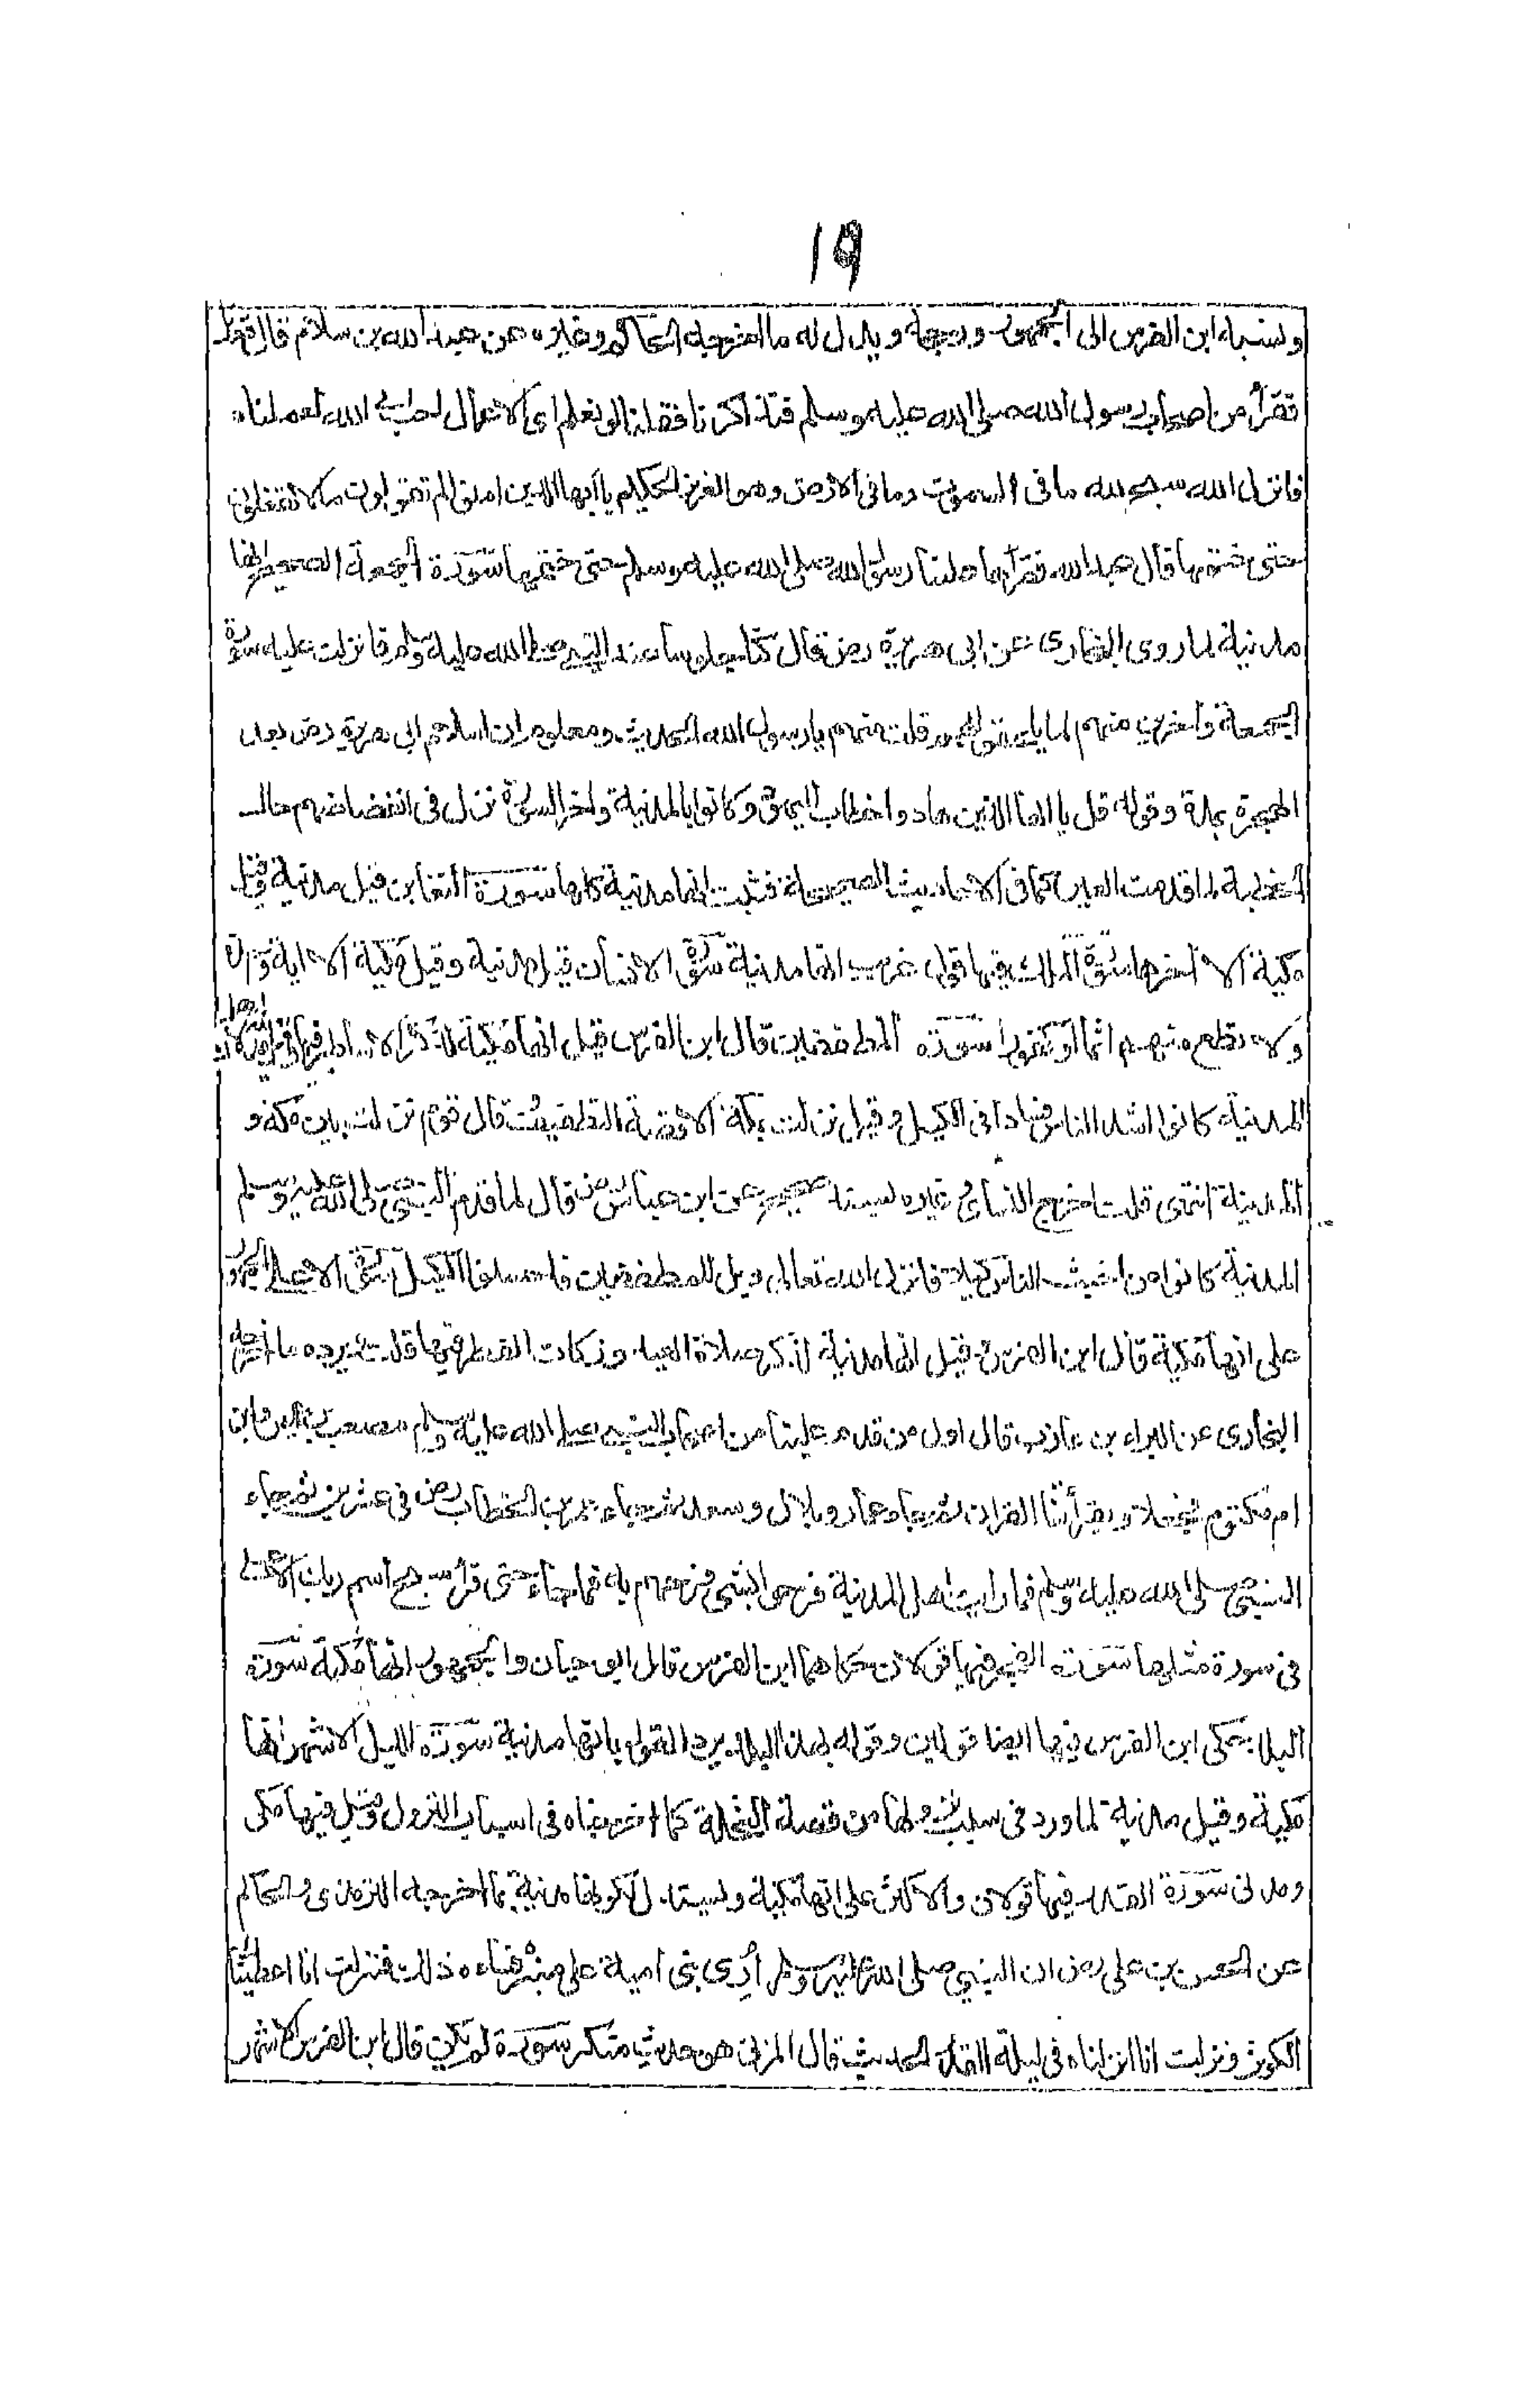 19
ونسبه ابن الفرس الى الجمهور ورجحه ويدل له ما اخرجه الحاكم وغيره عن عبد الله بن سلام قال قعدنا
نفرا من اصحاب رسول الله صلى الله عليه وسلم فتذاكرنا فقلنا لو نعلم اى الاعمال احب الى الله لعملناه
فانزل الله سبح لله ما فى السموت وما فى الارض وهو العزيز الحكيم يا ايها الذين امنوا لم تقولون ما لا تفعلون
حتى ختمها قال عبد الله فقرأها علينا رسول الله صلى الله عليه وسلم حتى ختمها سورة الجمعة الصحيح انها
مدنية لما روى البخارى عن ابى هريرة رض قال كنا جلوسا عند النبي صلى الله عليه وسلم فانزلت عليه سورة
الجمعة واخرين منهم لما يلحقوا بهم قلت من هم يا رسول الله الحديث ومعلوم ان اسلام ابى هريرة رض بعد
الهجرة بمدة وقوله قل يا ايها الذين هادوا خطاب لليهود وكانوا بالمدنية واخر السورة نزل فى انفضاضهم حال
الخطبة لما قدمت العير كما فى الاحاديث الصحيحة فثبت انها مدنية كلها سورة التغابن قيل مدنية وقيل
مكية الا اخرها سورة الملك فيها قول غريب انها مدنية سورة الانسان قيل مدنية وقيل مكية الا اية واحدة
ولا تطع منهم اثما او كفورا سورة المطففين قال ابن الفرس قيل انها مكية لذكر الاساطير فيها وقيل مدنية لان اهل
المدنية كانوا اشد الناس فسادا فى الكيل وقيل نزلت بمكة الا قصة التطفيف وقال قوم نزلت بين مكة و
المدينة انتهى قلت اخرج النسائى وغيره بسند صحيح عن ابن عباس رض قال لما قدم النبي صلى الله عليه وسلم
المدنية كانوا من اخبث الناس كيلا فانزل الله تعالى ويل للمطففين فاحسنوا الكيل سورة الاعلى الجمهور
على انها مكية قال ابن الفرس وقيل انها مدنية لذكر صلاة العيد وزكات الفطر فيها قلت ويرده ما اخرجه
البخارى عن البراء بن عازب قال اول من قدم علينا من اصحاب النبي صلى الله عليه وسلم مصعب بن عمير وابن
ام مكتوم فجعلا يقرأننا القران ثم جاء عمار وبلال وسعد ثم جاء عمر بن الخطاب رض فى عشرين ثم جاء
النبي صلى الله عليه وسلم فما رايت اهل المدنية فرحوا بشى فرحهم به فما جاء حتى قرأت سبح اسم ربك الاعلى
فى سورة مثلها سورة الفجر فيها قولان حكاهما ابن الفرس قال ابو حيان والجمهور انها مكية سورة
البلد حكى ابن الفرس فيها ايضا قولين وقوله بهذا البلد يرد القول بانها مدنية سورة الليل الاشهر انها
مكية وقيل مدنية لما ورد فى سبب نزولها من قصة النخلة كما اخرجناه فى اسباب النزول وقيل فيها مكى
ومدنى سورة القدر فيها قولان والاكثر على انها مكية ويستدل لكونها مدنية بما اخرجه الترمذى والحاكم
عن الحسن بن على رض ان النبي صلى الله عليه وسلم أرى بنى امية على منبره فساءه ذلك فنزلت انا اعطيناك
الكوثر ونزلت انا انزلناه فى ليلة القدر الحديث قال المزنى هو حديث منكر سورة لم يكن قال ابن الفرس الاشهر